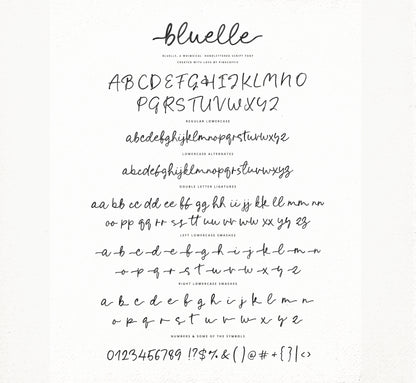 bluelle
BLUELLE, A WHIMSICAL HANDLETTERED SCRIPT FONT
CREATED WITH LOVE BY
ABCDEFGHIJKLMNO
PQRSTUVWXYZ
REGULAR LOWERCASE
abcdefghijklmnopqrstuvwxyz
LOWERCASE ALTERNATES
abcdefghijklmnopqrstuvwxyz
DOUBLE LETTER LIGATURES
aa bb cc dd ee ff gg hh ii jj kk ll mm nn
oo pp qq rr ss tt uu vv ww xx yy zz
LEFT LOWERCASE SWASHES
a b c d e f g h i j k l m n
o p q r s t u v w x y z
RIGHT LOWERCASE SWASHES
a b c d e f g h i j k l m n
o p q r s t u v w x y z
NUMBERS & SOME OF THE SYMBOLS
0123456789 !?$%&()@#+{}|<>